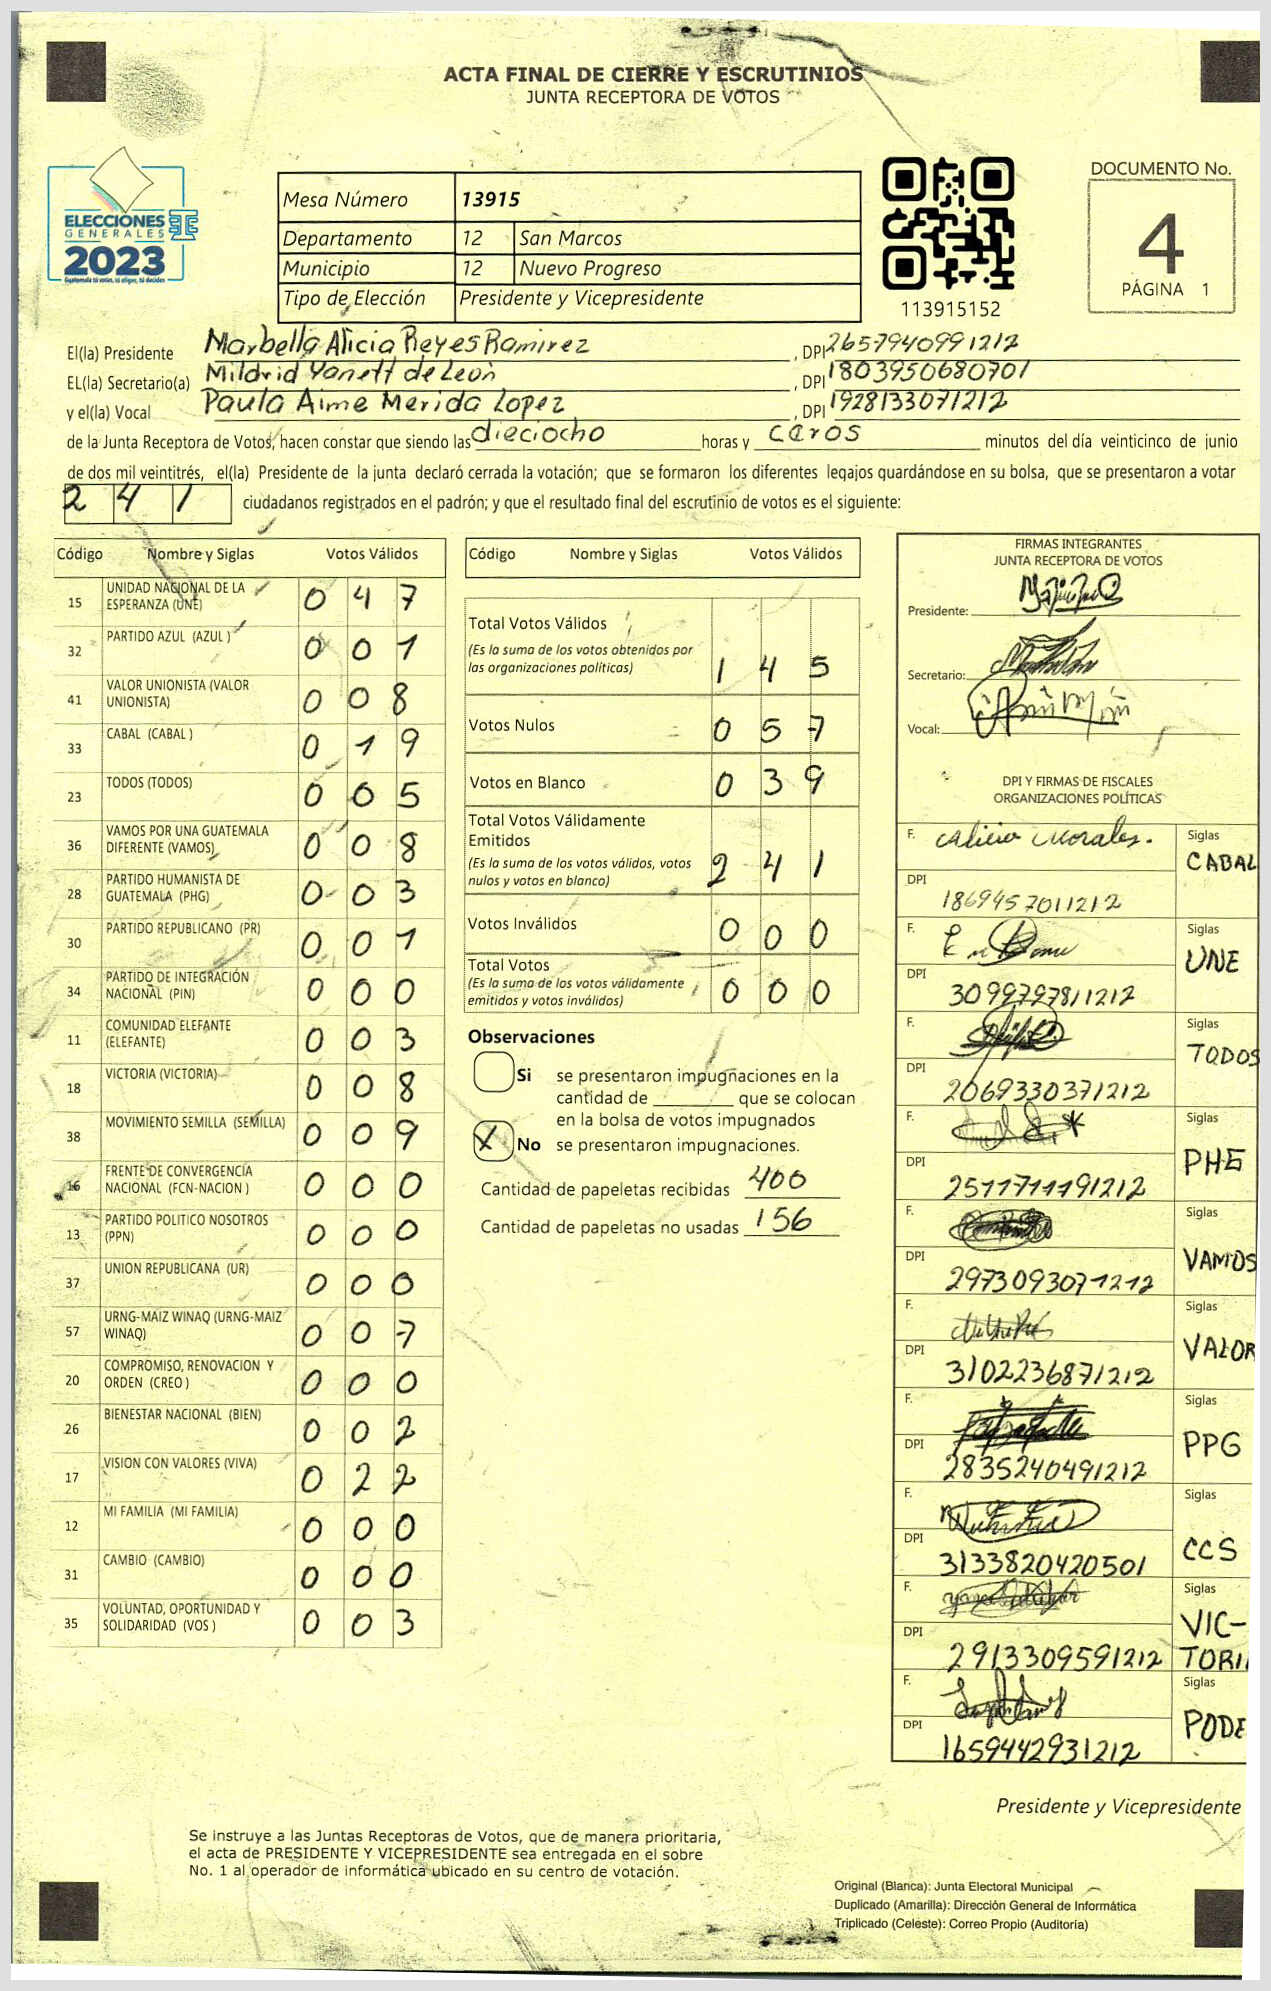 ACTA FINAL DE CIERRE Y ESCRUTINIOS
JUNTA RECEPTORA DE VOTOS
ELECCIONES
GENERALES
2023
Guatemala tú votas, tú eliges, tú decides
Mesa Número 13915
Departamento 12 San Marcos
Municipio 12 Nuevo Progreso
Tipo de Elección Presidente y Vicepresidente
113915152
DOCUMENTO No.
4
PÁGINA 1
El(la) Presidente Marbella Alicia Reyes Ramirez, DPI 2657940991212
EL(la) Secretario(a) Mildrid Yanett de León, DPI 1803950680701
y el(la) Vocal Paula Aime Merida Lopez, DPI 1928133071212
de la Junta Receptora de Votos, hacen constar que siendo las dieciocho horas y ceros minutos del día veinticinco de junio
de dos mil veintitrés, el(la) Presidente de la junta declaró cerrada la votación; que se formaron los diferentes legajos guardándose en su bolsa, que se presentaron a votar
241 ciudadanos registrados en el padrón; y que el resultado final del escrutinio de votos es el siguiente:
Código Nombre y Siglas Votos Válidos
15 UNIDAD NACIONAL DE LA ESPERANZA (UNE) 0 4 7
32 PARTIDO AZUL (AZUL ) 0 0 1
41 VALOR UNIONISTA (VALOR UNIONISTA) 0 0 8
33 CABAL (CABAL ) 0 1 9
23 TODOS (TODOS) 0 0 5
36 VAMOS POR UNA GUATEMALA DIFERENTE (VAMOS) 0 0 8
28 PARTIDO HUMANISTA DE GUATEMALA (PHG) 0 0 3
30 PARTIDO REPUBLICANO (PR) 0 0 1
34 PARTIDO DE INTEGRACIÓN NACIONAL (PIN) 0 0 0
11 COMUNIDAD ELEFANTE (ELEFANTE) 0 0 3
18 VICTORIA (VICTORIA) 0 0 8
38 MOVIMIENTO SEMILLA (SEMILLA) 0 0 9
16 FRENTE DE CONVERGENCIA NACIONAL (FCN-NACION ) 0 0 0
13 PARTIDO POLITICO NOSOTROS (PPN) 0 0 0
37 UNION REPUBLICANA (UR) 0 0 0
57 URNG-MAIZ WINAQ (URNG-MAIZ WINAQ) 0 0 7
20 COMPROMISO, RENOVACION Y ORDEN (CREO ) 0 0 0
26 BIENESTAR NACIONAL (BIEN) 0 0 2
17 VISION CON VALORES (VIVA) 0 2 2
12 MI FAMILIA (MI FAMILIA) 0 0 0
31 CAMBIO (CAMBIO) 0 0 0
35 VOLUNTAD, OPORTUNIDAD Y SOLIDARIDAD (VOS ) 0 0 3
Código Nombre y Siglas Votos Válidos
Total Votos Válidos
(Es la suma de los votos obtenidos por
las organizaciones políticas) 1 4 5
Votos Nulos 0 5 7
Votos en Blanco 0 3 9
Total Votos Válidamente
Emitidos
(Es la suma de los votos válidos, votos
nulos y votos en blanco) 2 4 1
Votos Inválidos 0 0 0
Total Votos
(Es la suma de los votos válidamente
emitidos y votos inválidos) 0 0 0
Observaciones
Si se presentaron impugnaciones en la
cantidad de ________ que se colocan
en la bolsa de votos impugnados
X No se presentaron impugnaciones.
Cantidad de papeletas recibidas 400
Cantidad de papeletas no usadas 156
FIRMAS INTEGRANTES
JUNTA RECEPTORA DE VOTOS
Presidente:
Secretario:
Vocal:
DPI Y FIRMAS DE FISCALES
ORGANIZACIONES POLÍTICAS
F. Morales. Siglas CABAL
DPI 1869457011212
F. Siglas UNE
DPI 3099797811212
F. Siglas TODOS
DPI 2069330371212
F. Siglas PHG
DPI 2511711191212
F. Siglas VAMOS
DPI 2973093071212
F. Siglas VALOR
DPI 3102236871212
F. Siglas PPG
DPI 2835240491212
F. Siglas CCS
DPI 3133820420501
F. Siglas VIC-
DPI 2913309591212 TORI
F. Siglas PODE
DPI 1659442931212
Presidente y Vicepresidente
Se instruye a las Juntas Receptoras de Votos, que de manera prioritaria,
el acta de PRESIDENTE Y VICEPRESIDENTE sea entregada en el sobre
No. 1 al operador de informática ubicado en su centro de votación.
Original (Blanca): Junta Electoral Municipal
Duplicado (Amarilla): Dirección General de Informática
Triplicado (Celeste): Correo Propio (Auditoría)